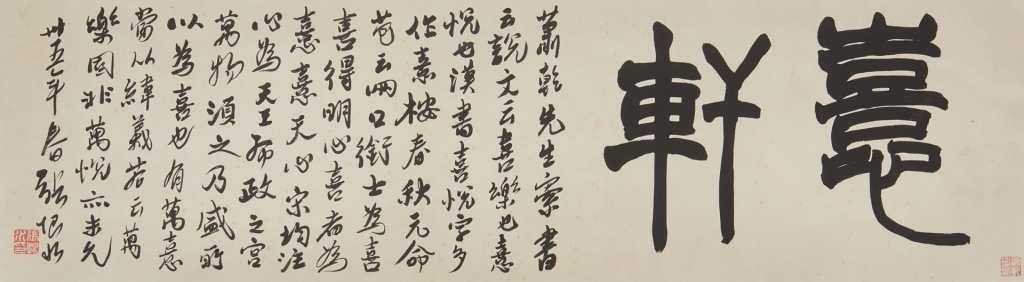 憙軒
蕭乾先生索書
云說文云喜樂也憙
悅也漢書喜悅字多
作憙桉春秋元命
苞云兩口銜士為喜
喜得明心喜者為
憙憙天心宋均注
心為天王布政之宮
萬物須之乃盛所
以為喜也有萬憙
當以緯義若云萬
樂固非萬悅亦未允
卅五年春日張恨水